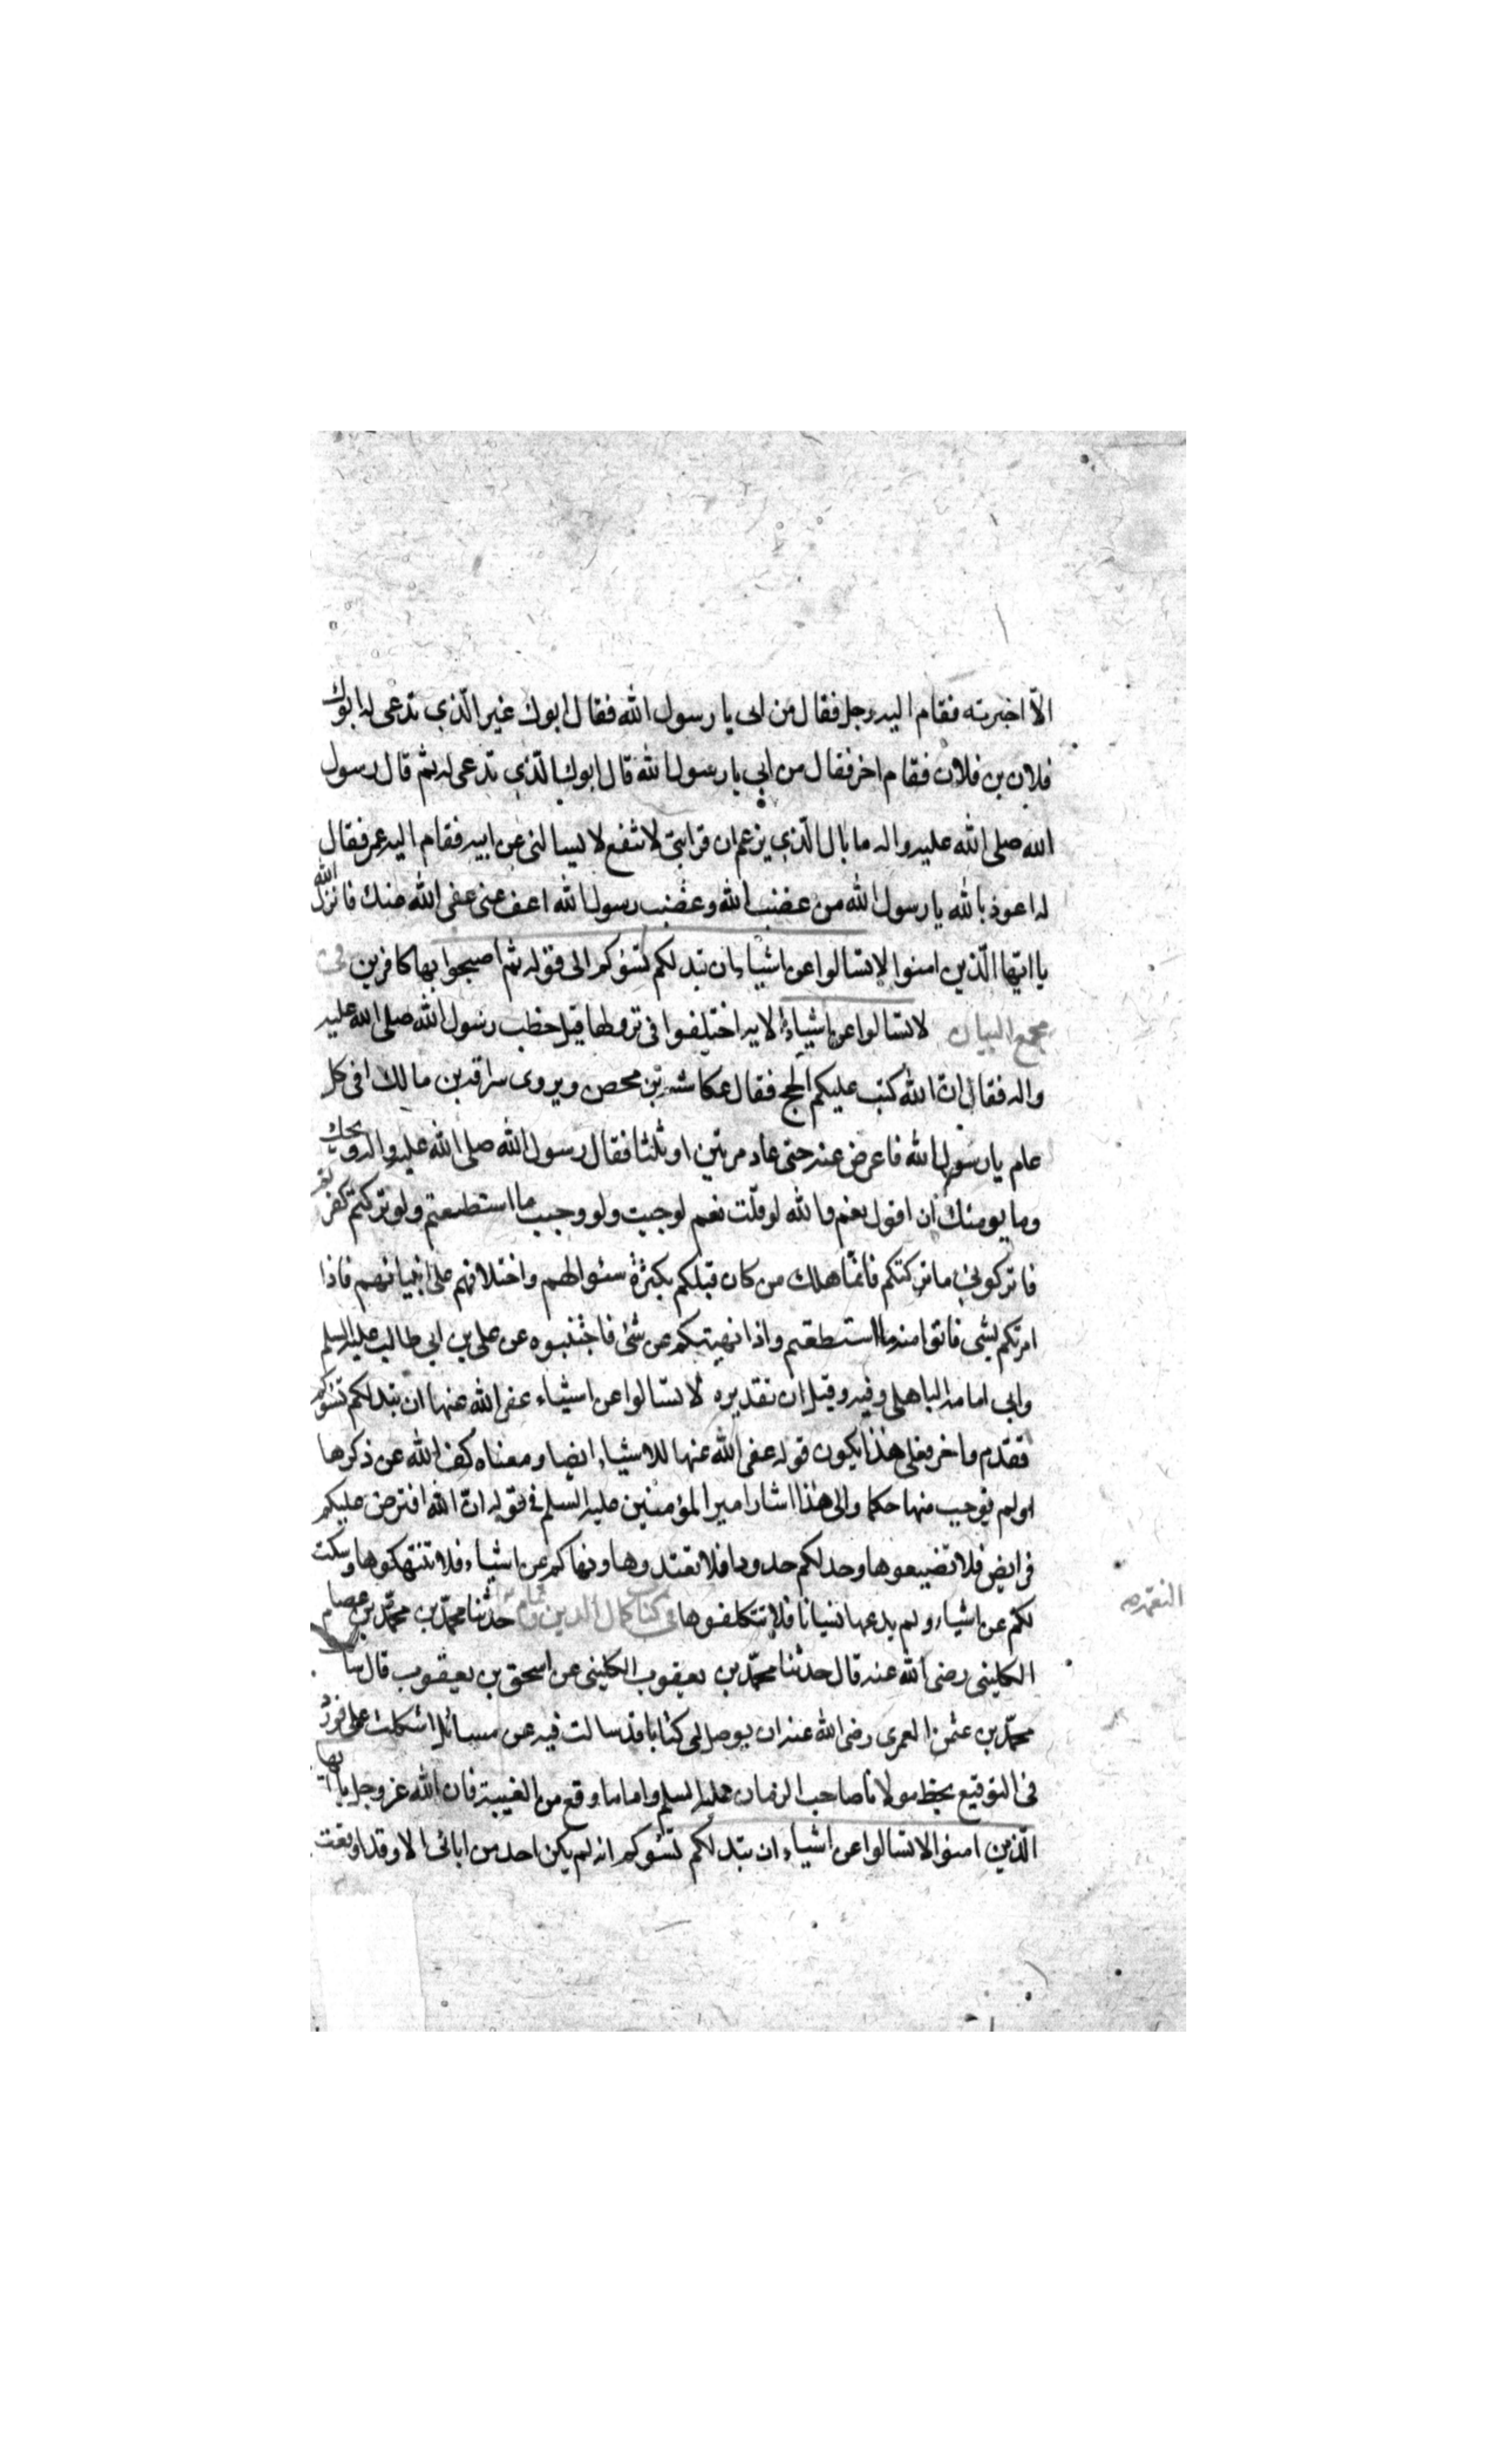 الّا اخبرته فقام اليه رجل فقال من ابى يا رسول الله فقال ابوك غير الّذي تدعى له ابوك
فلان بن فلان فقام اخر فقال من ابي يا رسول الله قال ابوك الّذي تدعى له ثم قال رسول
الله صلى الله عليه واله ما بال الّذي يزعم ان قرابتى لا تنفع لا يسالنى عن ابيه فقام اليه عمر فقال
له اعوذ بالله يا رسول الله من غضب الله وغضب رسول الله اعف عنى عفى الله عنك فانزل الله
يا ايّها الّذين امنوا لا تسالوا عن اشياء ان تبد لكم تسؤكم الى قوله ثم اصبحوا بها كافرين فى
مجمع البيان لا تسالوا عن اشياء الاية اختلفوا فى نزولها قيل خطب رسول الله صلى الله عليه
واله فقال انّ الله كتب عليكم الحج فقال عكاشة بن محصن ويروى سراقة بن مالك افى كل
عام يا رسول الله فاعرض عنه حتى عاد مرتين او ثلثا فقال رسول الله صلى الله عليه واله ويحك
وما يومنك ان اقول نعم والله لو قلت نعم لوجبت ولو وجبت ما استطعتم ولو تركتم لكفرتم
فاتركوني ما تركتكم فانّما هلك من كان قبلكم بكثرة سئوالهم واختلافهم على انبيائهم فاذا
امرتكم بشى فاتوا منه ما استطعتم واذا نهيتكم عن شئ فاجتنبوه عن على بن ابي طالب عليه السلم
وابي امامة الباهلى وفيه وقيل ان تقديره لا تسالوا عن اشياء عفى الله عنها ان تبد لكم تسؤكم
فقدم واخر فعلى هذا يكون قوله عفى الله عنها للاشياء ايضا ومعناه كف الله عن ذكرها
ولم يوجب منها حكما والى هذا اشار امير المؤمنين عليه السّلم فى قوله انّ الله افترض عليكم
فرايض فلا تضيعوها وحد لكم حدودا فلا تعتدوها ونهاكم عن اشياء فلا تنتهكوها وسكت
لكم عن اشياء ولم يدعها نسيانا فلا تتكلفوها فى كتاب كمال الدين وتمام حدثنا محمّد بن محمّد بن عصام
النعمه
الكلينى رضى الله عنه قال حدثنا محمّد بن يعقوب الكلينى عن اسحق بن يعقوب قال سالت
محمّد بن عثمن العمرى رضى الله عنه ان يوصل لى كتابا قد سالت فيه عن مسائل اشكلت على فورد
فى التوقيع بخط مولانا صاحب الزمان عليه السلم واما ما وقع من الغيبة فان الله عز وجل يا ايها
الّذين امنوا لا تسالوا عن اشياء ان تبد لكم تسؤكم انه لم يكن احد من ابائى الا وقد وقعت